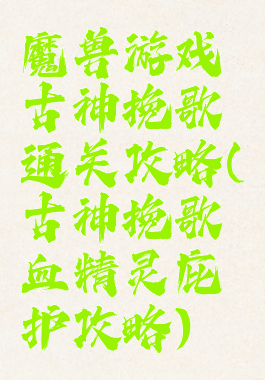 魔兽游戏
古神挽歌
通关攻略(
古神挽歌
血精灵庇
护攻略)